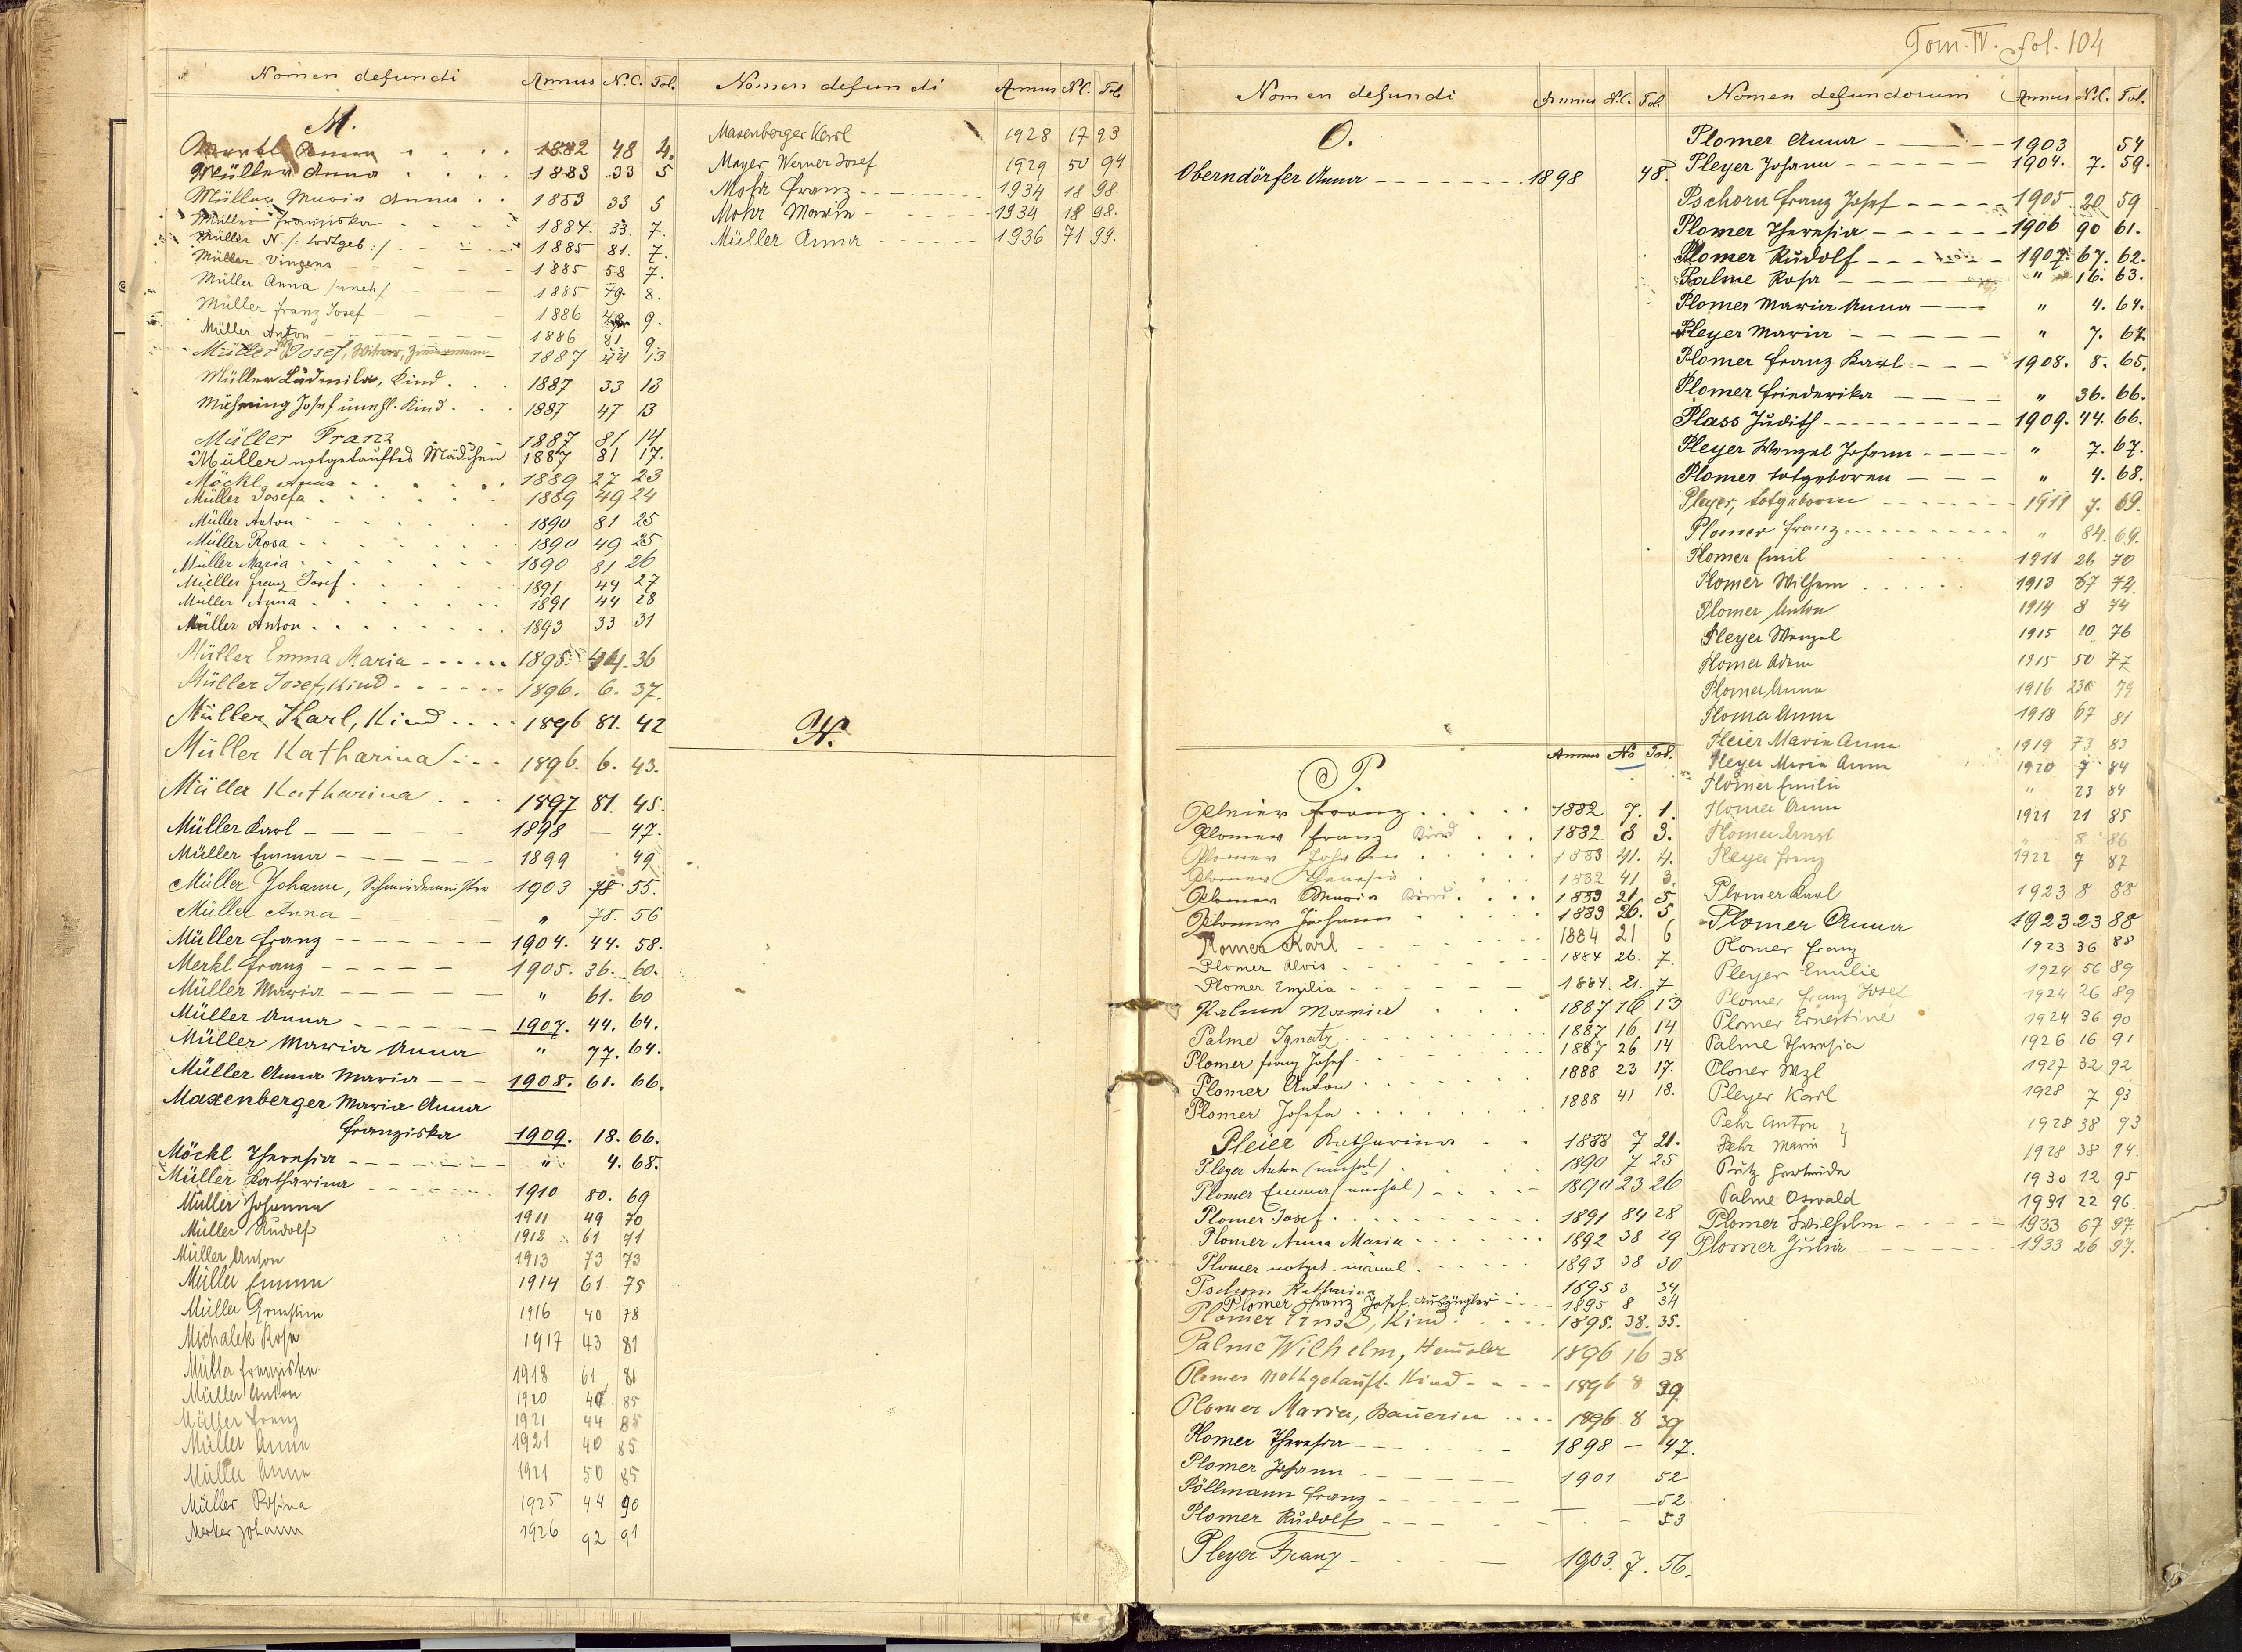 Tom. IV. fol. 104
Nomen defuncti Annus N.C. Fol.
M.
Merkl Anna 1882 48 4.
Müller Anna 1883 33 5
Müller Maria Anna 1883 33 5
Müller Franziska 1884. 33. 7.
Müller N /: todtgeb :/ 1885 81. 7.
Müller Vinzens 1885 58 7.
Müller Anna /uneh/ 1885 79. 8.
Müller Franz Josef 1886 9.
Müller Anton 1886 81 9.
Müller Josef, Witwer, Zimmermann 1887 44 13
Müller Ludmila, Kind 1887 33 13
Mühming Josef unehl. Kind 1887 47 13
Müller Franz 1887 81 14
Müller notgetauftes Mädchen 1887 81 17.
Möckl Anna 1889 27 23
Müller Josefa 1889 49 24
Müller Anton 1890 81 25
Müller Rosa 1890 49 25
Müller Maria 1890 81 26
Müller Franz Josef 1891 44 27
Müller Anna 1891 44 28
Müller Anton 1893 33 31
Müller Emma Maria 1895. 44. 36
Müller Josef, Kind 1896. 6. 37.
Müller Karl, Kind 1896 81. 42
Müller Katharina 1896. 6. 43.
Müller Katharina 1897 81. 45.
Müller Karl 1898 — 47.
Müller Emma 1899 49
Müller Johann, Schmiedemeister 1903 78 55.
Müller Anna " 78. 56
Müller Franz 1904. 44. 58.
Merkl Franz 1905. 36. 60.
Müller Maria " 61. 60
Müller Anna 1907. 44. 64.
Müller Maria Anna " 77. 64.
Müller Anna Maria 1908. 61. 66.
Maxenberger Maria Anna
Franziska 1909. 18. 66.
Möckl Theresia " 4. 68.
Müller Katharina 1910 80. 69
Müller Johanna 1911 49 70
Müller Rudolf 1912 61 71
Müller Anton 1913 73 73
Müller Emma 1914 61 75
Müller Ernestine 1916 40 78
Michalek Rosa 1917 43 81
Müller Franziska 1918 61 81
Müller Anton 1920 40 85
Müller Franz 1921 44 85
Müller Anna 1921 40 85
Müller Anna 1921 50 85
Müller Rosina 1925 44 90
Merker Johann 1926 92 91
Nomen defuncti Annus N.C. Fol.
Maxenberger Karl 1928 17 93
Mayer Werner Josef 1929 50 94
Mohr Franz 1934 18 98.
Mohr Maria 1934 18 98.
Müller Anna 1936 71 99.
N.
Nomen defuncti Annus N.C. Fol.
O.
Oberndörfer Anna 1898 48.
P. Annus No Fol.
Pleier Franz 1882 7. 1.
Plomer Franz Kind 1882 8 3.
Plomer Johann 1883 41. 4.
Plomer Theresia 1882 41 3.
Plomer Maria Kind 1883 21 5
Plomer Johann 1883 26. 5
Plomer Karl 1884 21 6
Plomer Alois 1884 26. 7
Plomer Emilia 1884. 21. 7
Palme Maria 1887 16 13
Palme Ignatz 1887 16 14
Plomer Franz Josef 1887 26 14
Plomer Anton 1888 23 17.
Plomer Josefa 1888 41 18.
Pleier Katharina 1888 7 21.
Pleyer Anton (unehel) 1890 7 25
Plomer Emma (unehel) 1890 23 26
Plomer Josef 1891 84 28
Plomer Anna Maria 1892 38 29
Plomer notget. männl. 1893 38 30
Pschorn Katharina 1895 3 34
Plomer Franz Josef, Auszügler 1895 8 34
Plomer Ernst, Kind 1895. 38. 35.
Palme Wilhelm, Häusler 1896 16 38
Plomer nothgetauft. Kind 1896 8 39
Plomer Maria, Bäuerin 1896 8 39
Plomer Theresia 1898 — 47.
Plomer Johann 1901 52
Pöllmann Franz — 52.
Plomer Rudolf — 53
Pleyer Franz 1903. 7. 56.
Nomen defunctorum Annus N.C. Fol.
Plomer Anna 1903 54
Pleyer Johann 1904. 7. 59.
Pschorn Franz Josef 1905 20 59
Plomer Theresia 1906 90 61.
Plomer Rudolf 1907. 67. 62.
Palme Rosa " 16. 63.
Plomer Maria Anna " 4. 64.
Pleyer Maria " 7. 64.
Plomer Franz Karl 1908. 8. 65.
Plomer Friederika " 36. 66.
Plass Judith 1909. 44. 66.
Pleyer Wenzel Johann " 7. 67.
Plomer totgeboren " 4. 68.
Pleyer, totgeboren 1911 7. 69.
Plomer Franz " 84. 69.
Plomer Emil 1911 26 70
Plomer Wilhem 1913 67 72
Plomer Anton 1914 8 74
Pleyer Wenzel 1915 10 76
Plomer Adam 1915 50 77
Plomer Anna 1916 23 79
Ploma Anna 1918 67 81
Pleier Maria Anna 1919 73 83
Pleyer Maria Anna 1920 7 84
Plomer Emilie " 23 84
Plomer Anna 1921 21 85
Plomer Ernst " 8 86
Pleyer Franz 1922 7 87
Plomer Karl 1923 8 88
Plomer Anna 1923 23 88
Plomer Franz 1923 36 88
Pleyer Emilie 1924 56 89
Plomer Franz Josef 1924 26 89
Plomer Ernestine 1924 36 90
Palme Theresia 1926 16 91
Ploner Wzl 1927 32 92
Pleyer Karl 1928 7 93
Pehr Anton } 1928 38 93
Pehr Maria } 1928 38 94.
Putz Gertrude 1930 12 95
Palme Oswald 1931 22 96.
Plomer Wilhelm 1933 67 97.
Plomer Julia 1933 26 97.